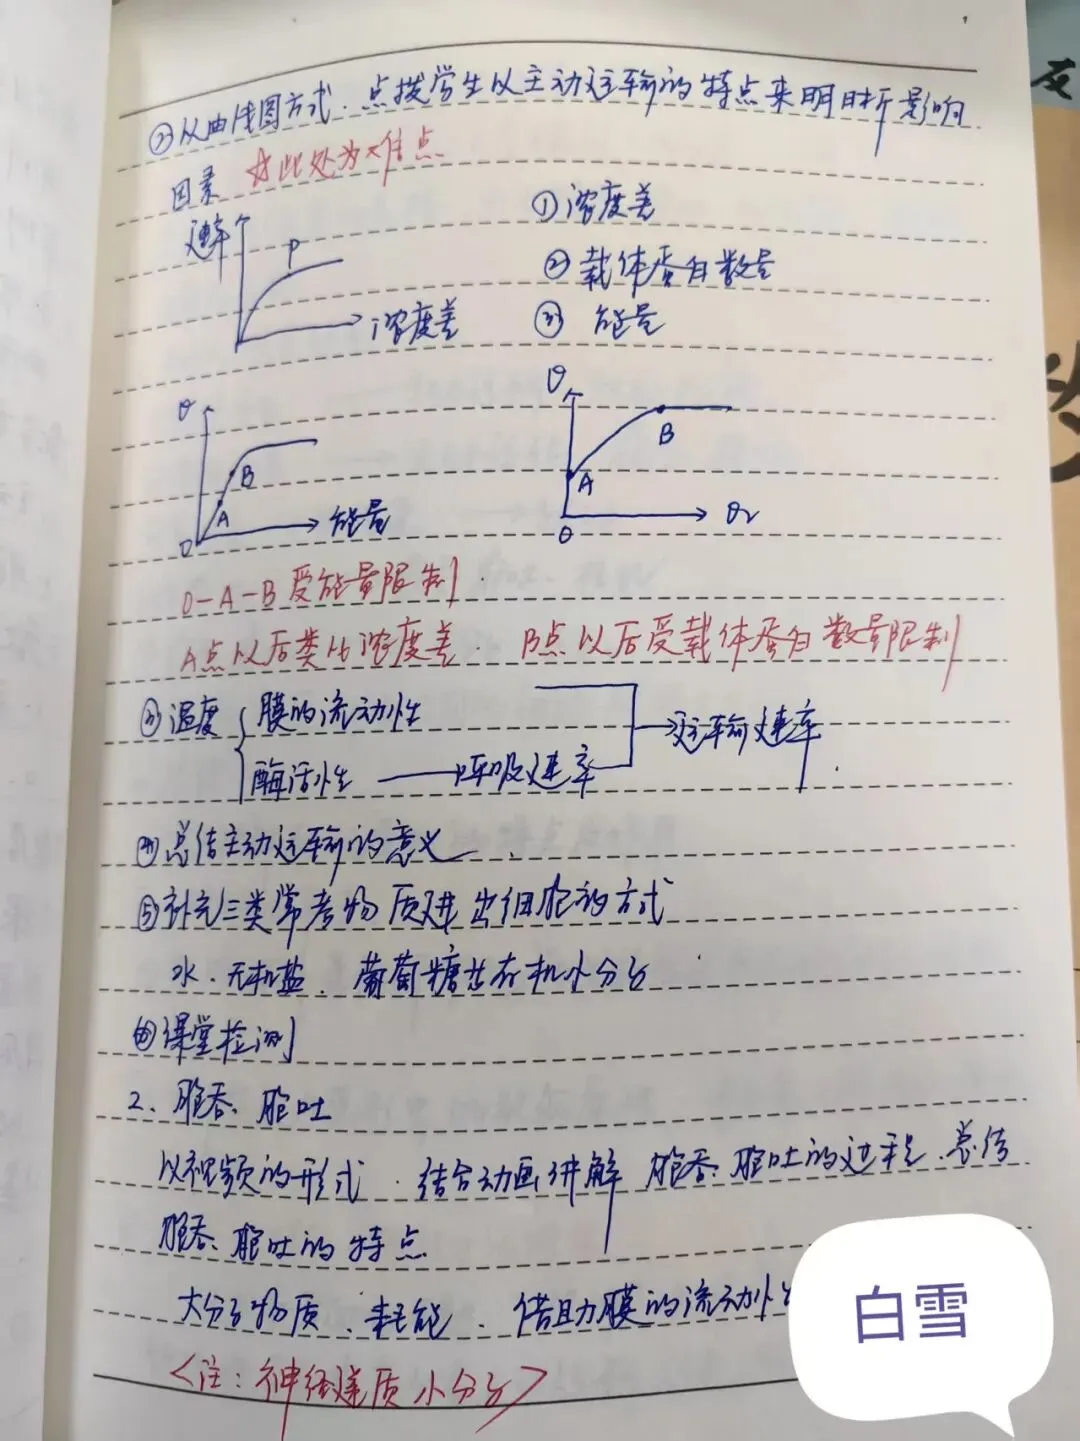 ②从曲线图方式.点拨学生以主动运输的特点来明晰影响
因素 ☆此处为难点
速率
P
浓度差
①浓度差
②载体蛋白数量
③ 能量
v
B
A
0
能量
v
B
A
0
O₂
0-A-B受能量限制.
A点以后类比浓度差. B点以后受载体蛋白数量限制
③温度{膜的流动性
酶活性→呼吸速率
→运输速率
④总结主动运输的意义
⑤补充三类常考物质进出细胞的方式
水.无机盐.葡萄糖等有机小分子
⑥课堂检测
2、胞吞、胞吐
以视频的形式.结合动画讲解 胞吞、胞吐的过程.总结
胞吞、胞吐的特点
大分子物质、耗能、借助膜的流动性
<注:神经递质小分子>
白雪